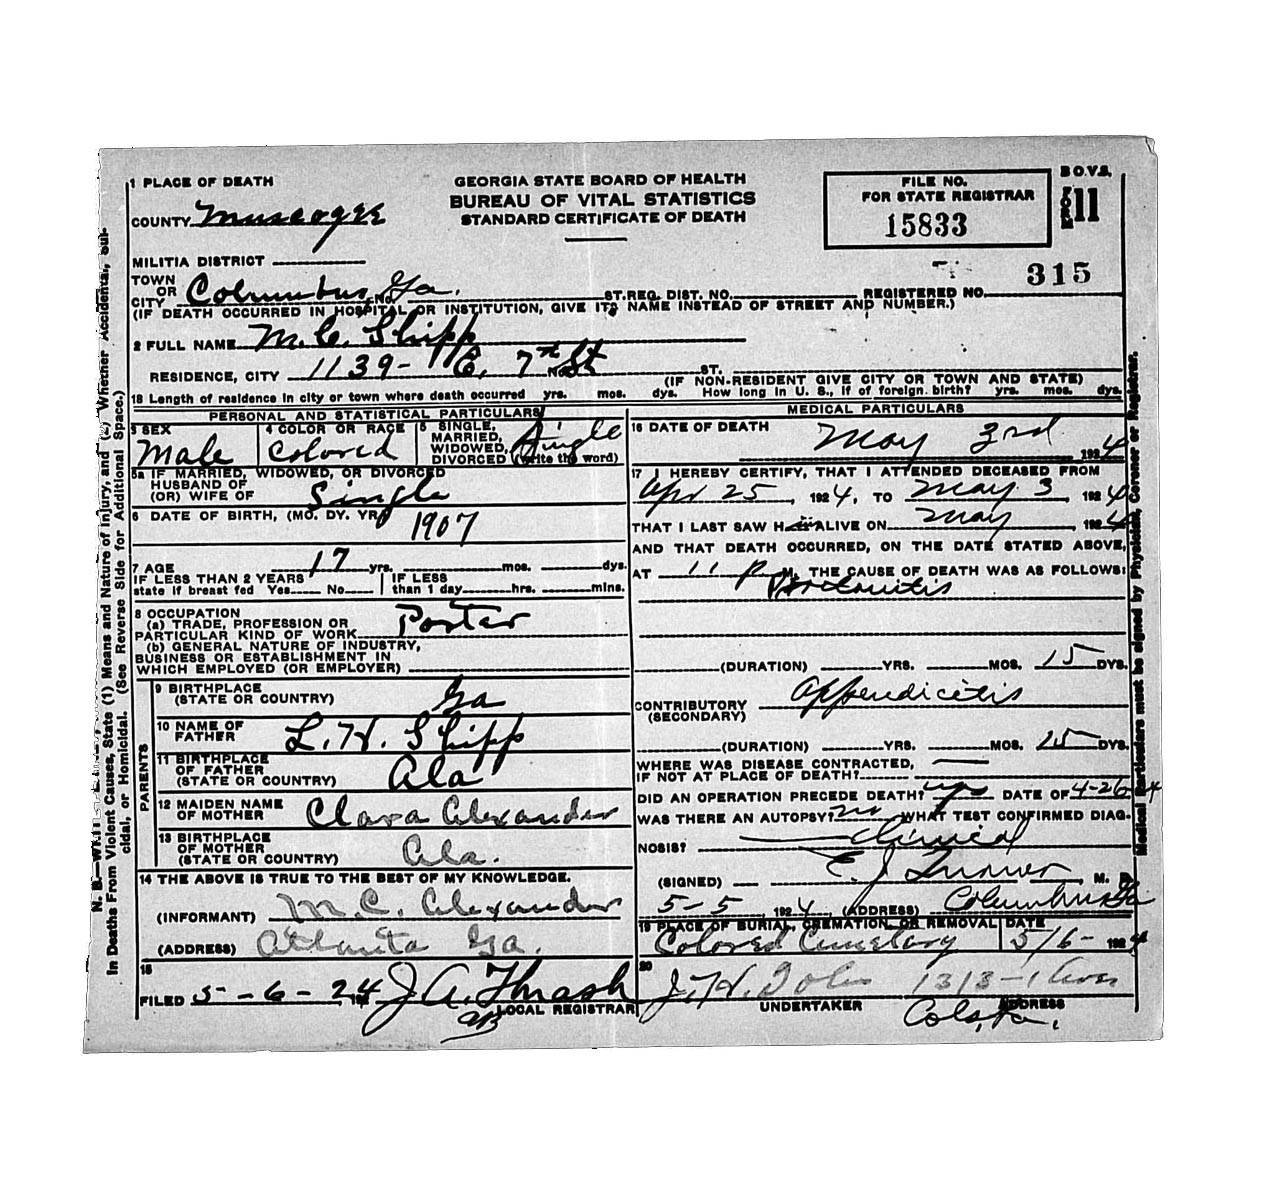 1 PLACE OF DEATH
COUNTY Muscogee
GEORGIA STATE BOARD OF HEALTH
BUREAU OF VITAL STATISTICS
STANDARD CERTIFICATE OF DEATH
FILE NO.
FOR STATE REGISTRAR
15833
B.O.V.S.
11
MILITIA DISTRICT
TOWN
OR
CITY Columbus, Ga. No. ST. REG. DIST. NO. REGISTERED NO. 315
(IF DEATH OCCURRED IN HOSPITAL OR INSTITUTION, GIVE ITS NAME INSTEAD OF STREET AND NUMBER.)
2 FULL NAME M. C. Shipp
RESIDENCE, CITY 1139- E. 7th St No. ST.
(IF NON-RESIDENT GIVE CITY OR TOWN AND STATE)
18 Length of residence in city or town where death occurred yrs. mos. dys. How long in U. S., if of foreign birth? yrs. mos. dys.
PERSONAL AND STATISTICAL PARTICULARS
3 SEX
Male
4 COLOR OR RACE
Colored
5 SINGLE,
MARRIED,
WIDOWED,
DIVORCED (write the word)
Single
5a IF MARRIED, WIDOWED, OR DIVORCED
HUSBAND OF
(OR) WIFE OF Single
6 DATE OF BIRTH, (MO. DY. YR) 1907
7 AGE 17 yrs. mos. dys.
IF LESS THAN 2 YEARS
state if breast fed Yes No
IF LESS
than 1 day hrs. mins.
8 OCCUPATION
(a) TRADE, PROFESSION OR
PARTICULAR KIND OF WORK Porter
(b) GENERAL NATURE OF INDUSTRY,
BUSINESS OR ESTABLISHMENT IN
WHICH EMPLOYED (OR EMPLOYER)
PARENTS
9 BIRTHPLACE
(STATE OR COUNTRY) Ga
10 NAME OF
FATHER L. H. Shipp
11 BIRTHPLACE
OF FATHER
(STATE OR COUNTRY) Ala
12 MAIDEN NAME
OF MOTHER Clara Alexander
13 BIRTHPLACE
OF MOTHER
(STATE OR COUNTRY) Ala.
14 THE ABOVE IS TRUE TO THE BEST OF MY KNOWLEDGE.
(INFORMANT) M. C. Alexander
(ADDRESS) Atlanta Ga.
15
FILED 5-6-24 19 J A. Thrash
LOCAL REGISTRAR
MEDICAL PARTICULARS
16 DATE OF DEATH May 3rd 1924
17 I HEREBY CERTIFY, THAT I ATTENDED DECEASED FROM
Apr 25, 1924, TO May 3, 1924
THAT I LAST SAW H ALIVE ON May, 1924
AND THAT DEATH OCCURRED, ON THE DATE STATED ABOVE,
AT 11 P M. THE CAUSE OF DEATH WAS AS FOLLOWS:
Peritonitis
(DURATION) YRS. MOS. 15 DYS.
CONTRIBUTORY Appendicitis
(SECONDARY)
(DURATION) YRS. MOS. 15 DYS.
WHERE WAS DISEASE CONTRACTED,
IF NOT AT PLACE OF DEATH?
DID AN OPERATION PRECEDE DEATH? yes DATE OF 4-26 24
WAS THERE AN AUTOPSY? no WHAT TEST CONFIRMED DIAG-
NOSIS? Clinical
(SIGNED) E. J. Turner M. D.
5-5, 1924 (ADDRESS) Columbus Ga
19 PLACE OF BURIAL, CREMATION, OR REMOVAL
Colored Cemetary
DATE
5/6- 1924
20
J. H. 1313-1 Ave
UNDERTAKER ADDRESS
N. B.
In Deaths From Violent Causes, State (1) Means and Nature of Injury, and (2) Whether Accidental, Sui-
cidal, or Homicidal. (See Reverse Side for Additional Space.)
Medical Particulars must be signed by Physician, Coroner or Registrar.